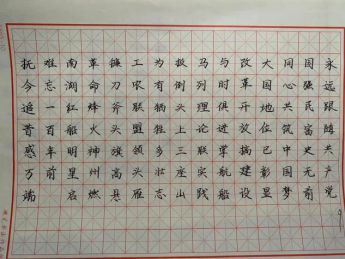 永远跟随共产党
国强民富史无前
同心共筑中国梦
大国地位已彰显
改革开放搞建设
与时俱进掌航船
马列理论联实践
倒头上三座山
为有牺牲多壮志
工农联盟领头雁
镰刀斧头旗高悬
革命烽火神州燃
南湖红船启
难忘百年前
抚今追昔感万端